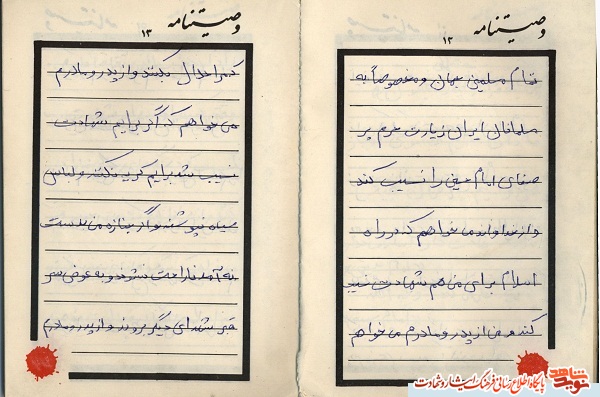 وصیتنامه
۱۲
تمام مسلمین جهان و مخصوصاً به
مسلمانان ایران زیارت حرم پر
صفای امام حسین را نصیب کند
و از خداوند می خواهم که در راه
اسلام برای من هم شهادت نصیب
کند و من از پدر و مادرم می خواهم
وصیتنامه
۱۳
که مرا حلال بکنند و از پدر و مادرم
می خواهم که اگر برایم شهادت
نصیب شد برایم گریه نکنند و لباس
سیاه نپوشند و اگر جنازه من بدست
نه آمد ناراحت نشوند و به عوض سر
قبر شهدای دیگر بروند و از پدر و مادرم
نوید شاهد
پایگاه اطلاع رسانی فرهنگ ایثار و شهادت